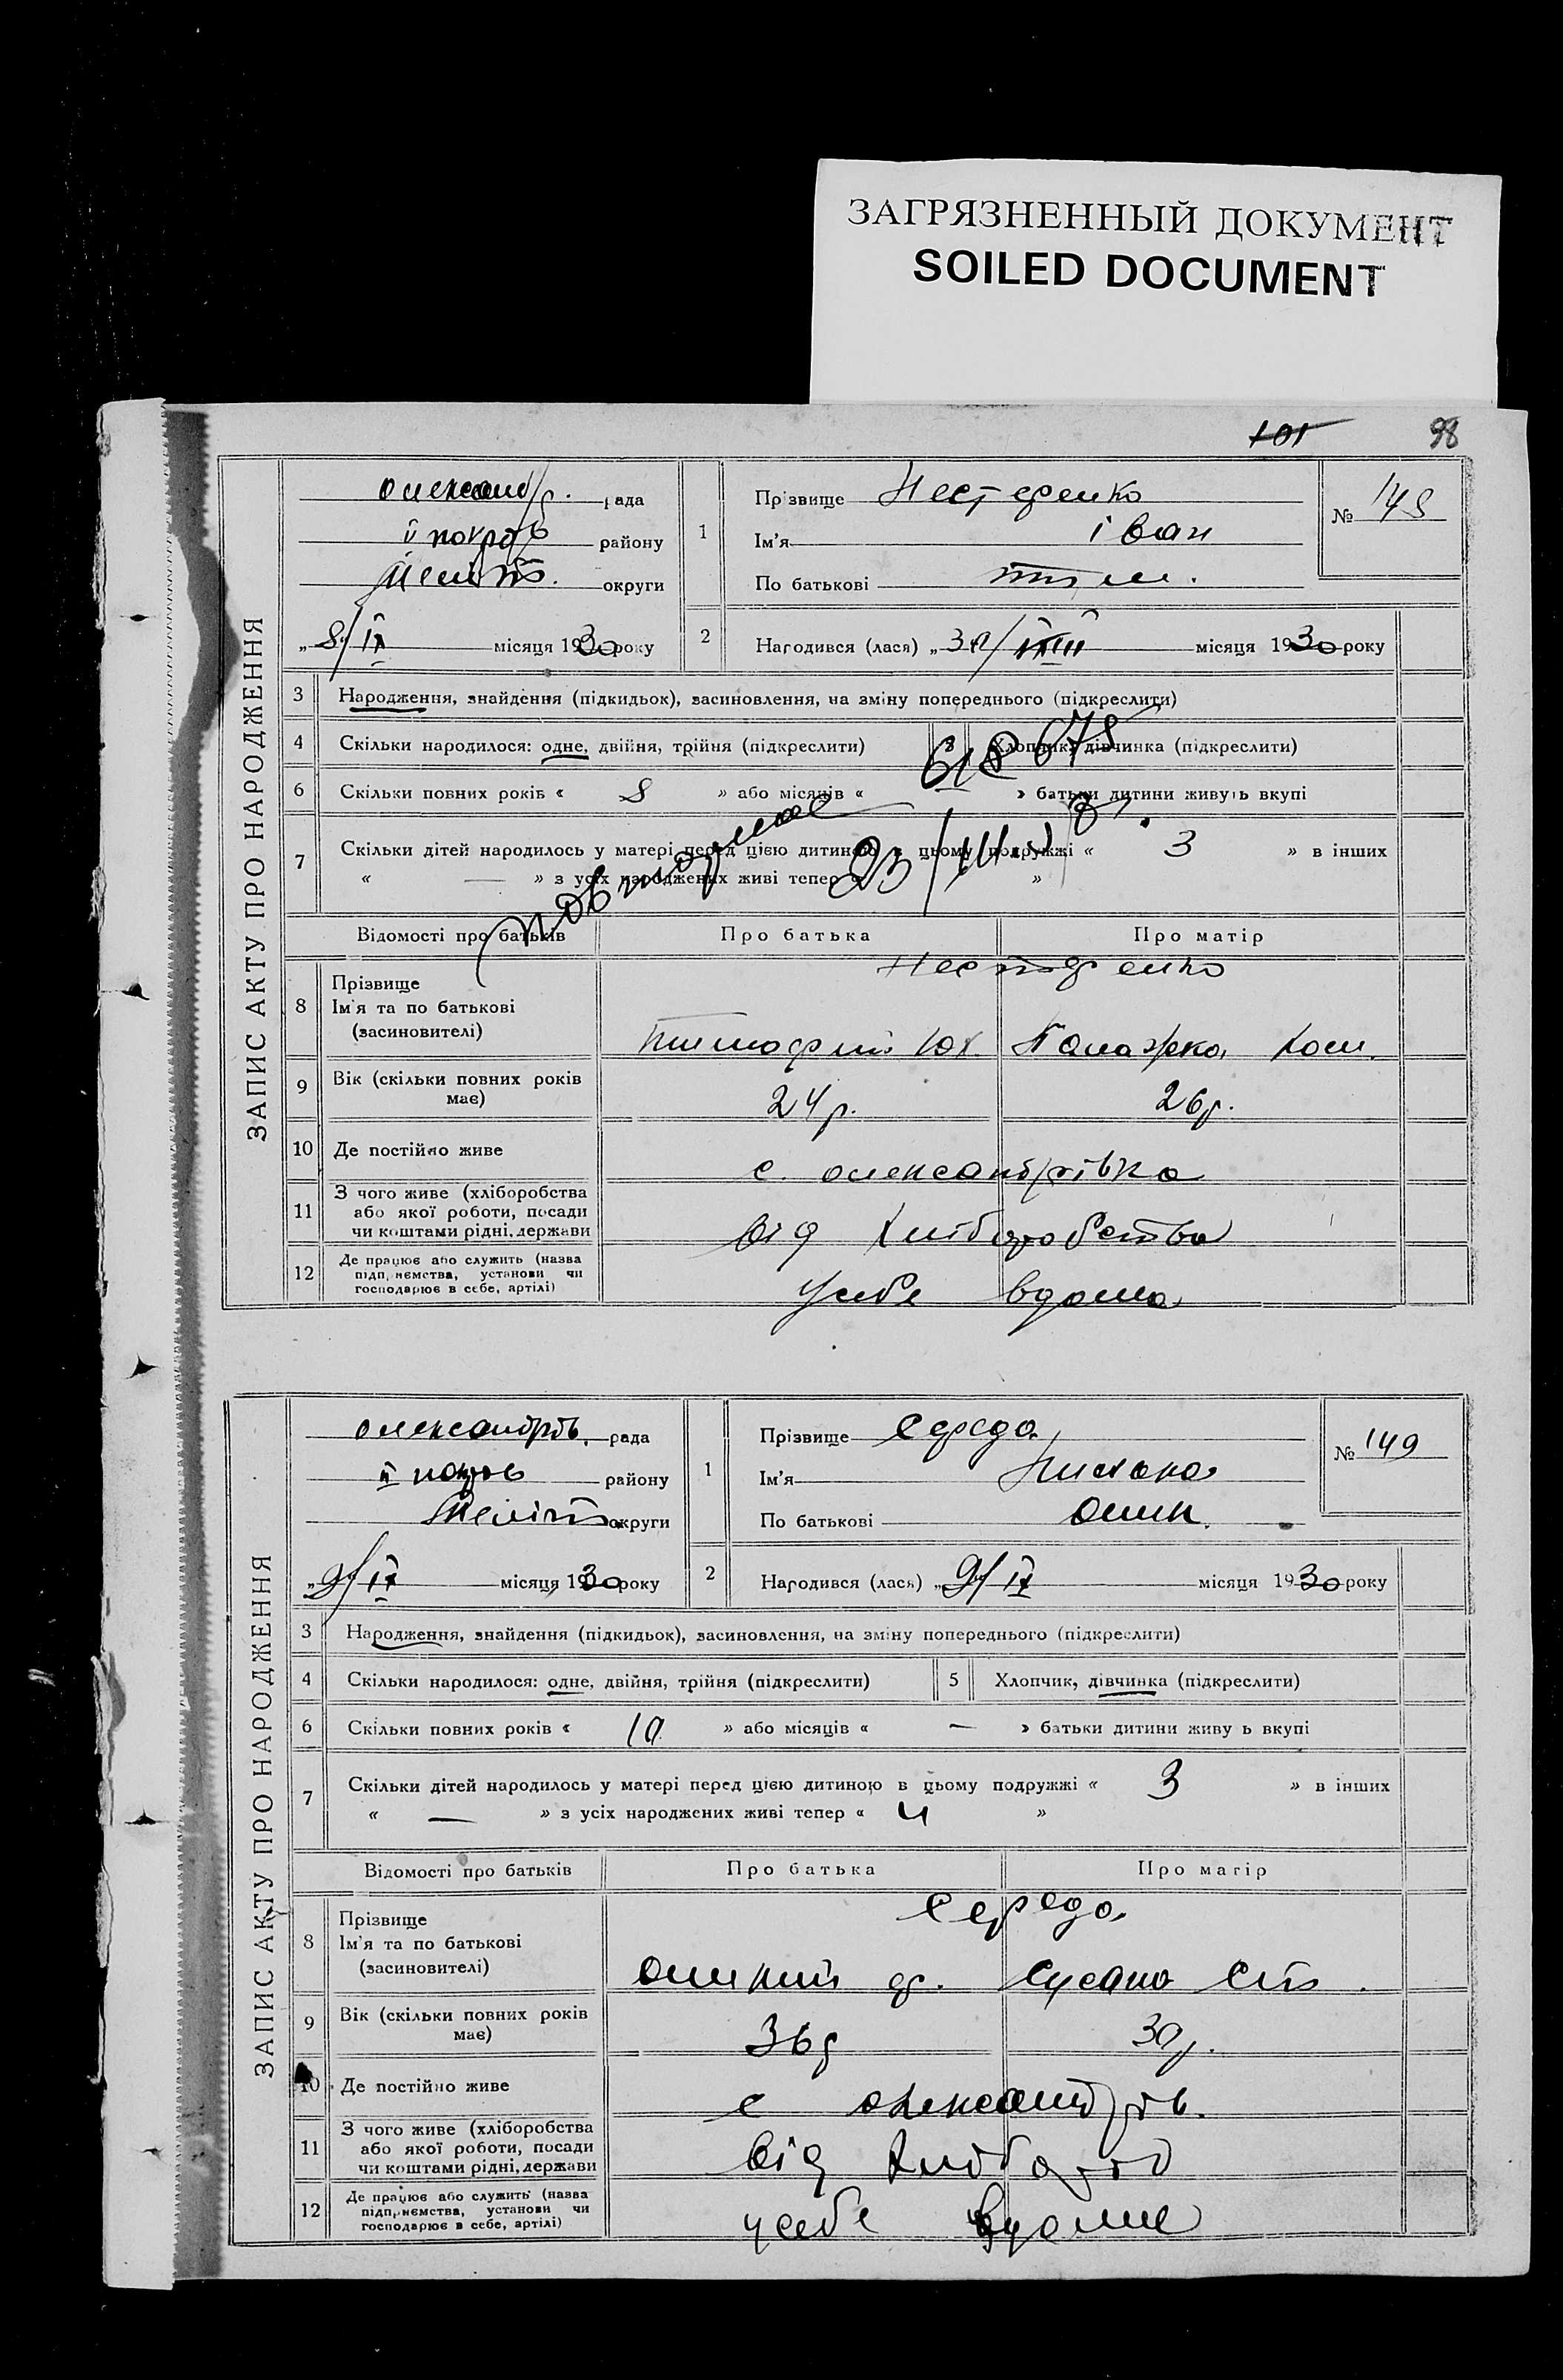 ЗАГРЯЗНЕННЫЙ ДОКУМЕНТ
SOILED DOCUMENT
101 98
ЗАПИС АКТУ ПРО НАРОДЖЕННЯ
олександр. рада
ІІ покров району
Меліт. округи
„8/ІХ місяця 1930 року
1
Прізвище Нестеренко
Ім'я Іван
По батькові тим.
№ 148
2 Народився (лася) „30/VIII місяця 1930 року
3 Народження, знайдення (підкидьок), засиновлення, на зміну попереднього (підкреслити)
4 Скільки народилося: одне, двійня, трійня (підкреслити) 5 Хлопчик, дівчинка (підкреслити)
6 Скільки повних років « 8 » або місяців « » батьки дитини живуть вкупі
7 Скільки дітей народилось у матері перед цією дитиною в цьому подружжі « 3 » в інших
« — » з усіх народжених живі тепер « »
повторное
Відомості про батьків Про батька Про матір
8 Прізвище
Ім'я та по батькові
(засиновителі)
Нестеренко
Тимофій Палажка
9 Вік (скільки повних років
має)
24р. 26р.
10 Де постійно живе с. олександрівка
11 З чого живе (хліборобства
або якої роботи, посади
чи коштами рідні, держави
від хліборобства
12 Де працює або служить (назва
підприємства, установи чи
господарює в себе, артілі)
Усебе вдома
ЗАПИС АКТУ ПРО НАРОДЖЕННЯ
олександрів. рада
ІІ покров району
Меліт. округи
„9/ІХ місяця 1930 року
1
Прізвище Середа
Ім'я
По батькові Оник.
№ 149
2 Народився (лася) „9/ІХ місяця 1930 року
3 Народження, знайдення (підкидьок), засиновлення, на зміну попереднього (підкреслити)
4 Скільки народилося: одне, двійня, трійня (підкреслити) 5 Хлопчик, дівчинка (підкреслити)
6 Скільки повних років « 10 » або місяців « — » батьки дитини живу ь вкупі
7 Скільки дітей народилось у матері перед цією дитиною в цьому подружжі « 3 » в інших
« — » з усіх народжених живі тепер « 4 »
Відомості про батьків Про батька Про матір
8 Прізвище
Ім'я та по батькові
(засиновителі)
Середа
Оникій Сусана
9 Вік (скільки повних років
має)
36р 30р.
10 Де постійно живе с олександрів.
11 З чого живе (хліборобства
або якої роботи, посади
чи коштами рідні, держави
від хлібороб
12 Де працює або служить (назва
підприємства, установи чи
господарює в себе, артілі)
усебе вдома